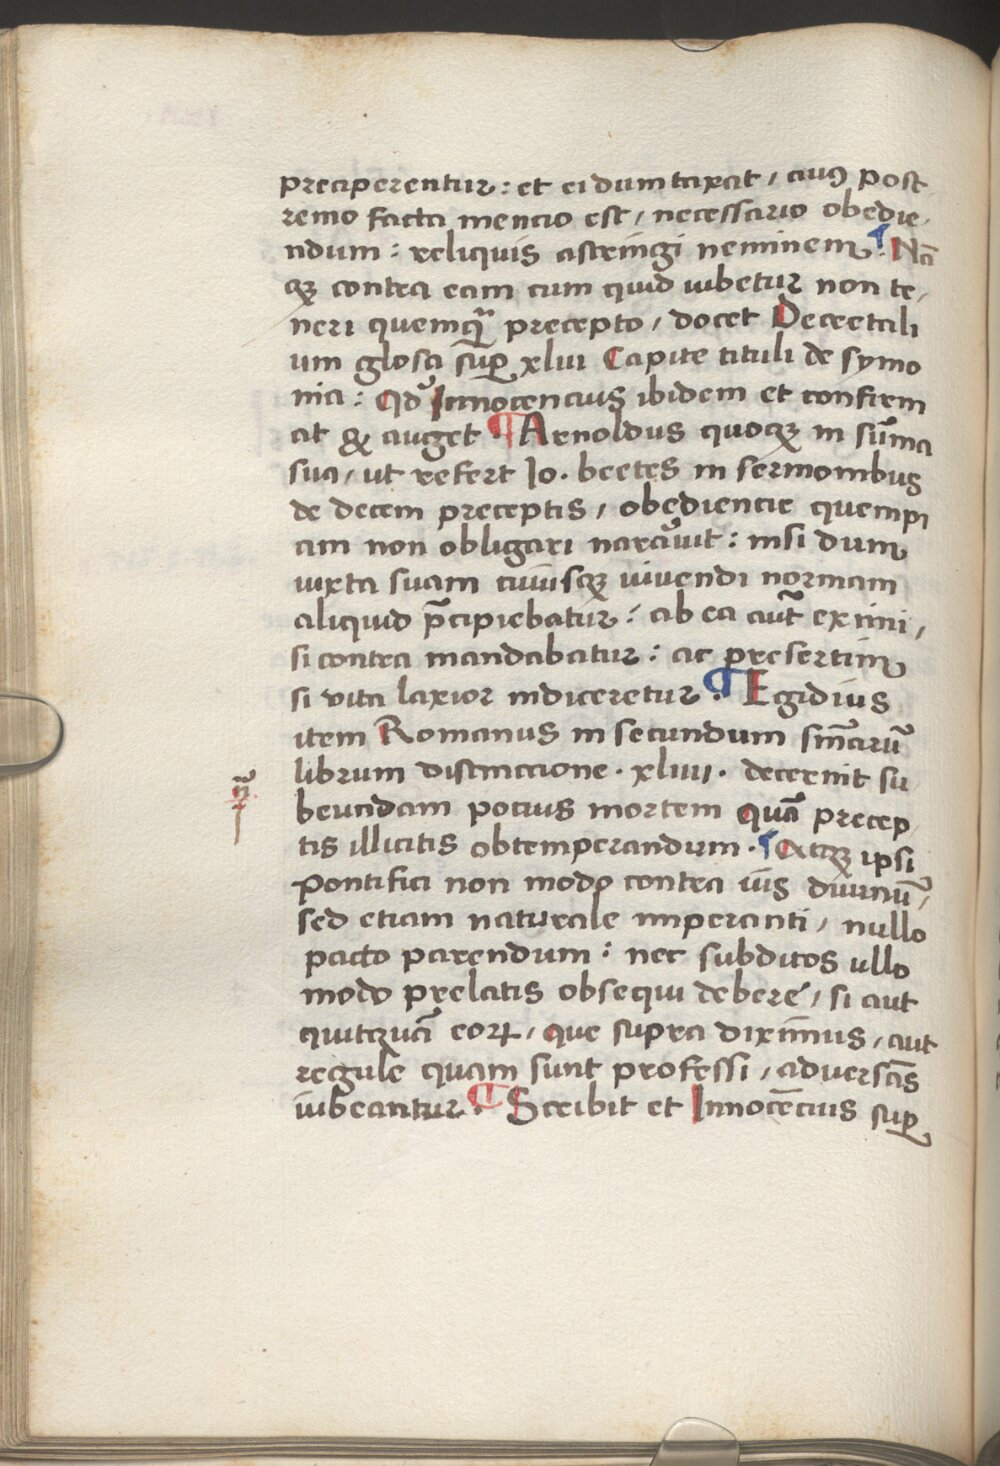 preciperentur : et ei dumtaxat / cuiꝰ post
remo facta mencio est / necessario obedie /
ndum : reliquis astringi neminem . ¶ Nā
qꝫ contra eam cum quid iubetur non te /
neri quemqᷓ precepto / docet Decretali
um glosa suꝑ xliii Capite tituli de symo
nia : Qdͦ Innocencius ibidem et confirm
at & auget . ¶ Arnoldus quoqꝫ in sūma
sua / ut refert Io . beetes in sermonibus
de decem preceptis / obediencie quempi
am non obligari narrauit : nisi dum
iuxta suam cuiusqꝫ uiuendi normam
aliquid p̄cipiebatur : ab ea aut̄ eximi /
si contra mandabatur : ac presertim
si vita laxior indiceretur . ¶ Egidius
item Romanus in secundum sn̄iarū
librum distinccione . xliiii . decernit su
beundam pocius mortem quā precep
tis illicitis obtemperandum . ¶ Atqꝫ ipsi
Pontifici non modo contra ius diuinū /
sed etiam naturale imperanti / nullo
pacto parendum : nec subditos ullo
modo prelatis obsequi debere / si aut
quitquā eoꝝ / que supra diximus / aut
regule quam sunt professi / aduersās
iubeantur . ¶ Scribit et Innocēcius suꝑ